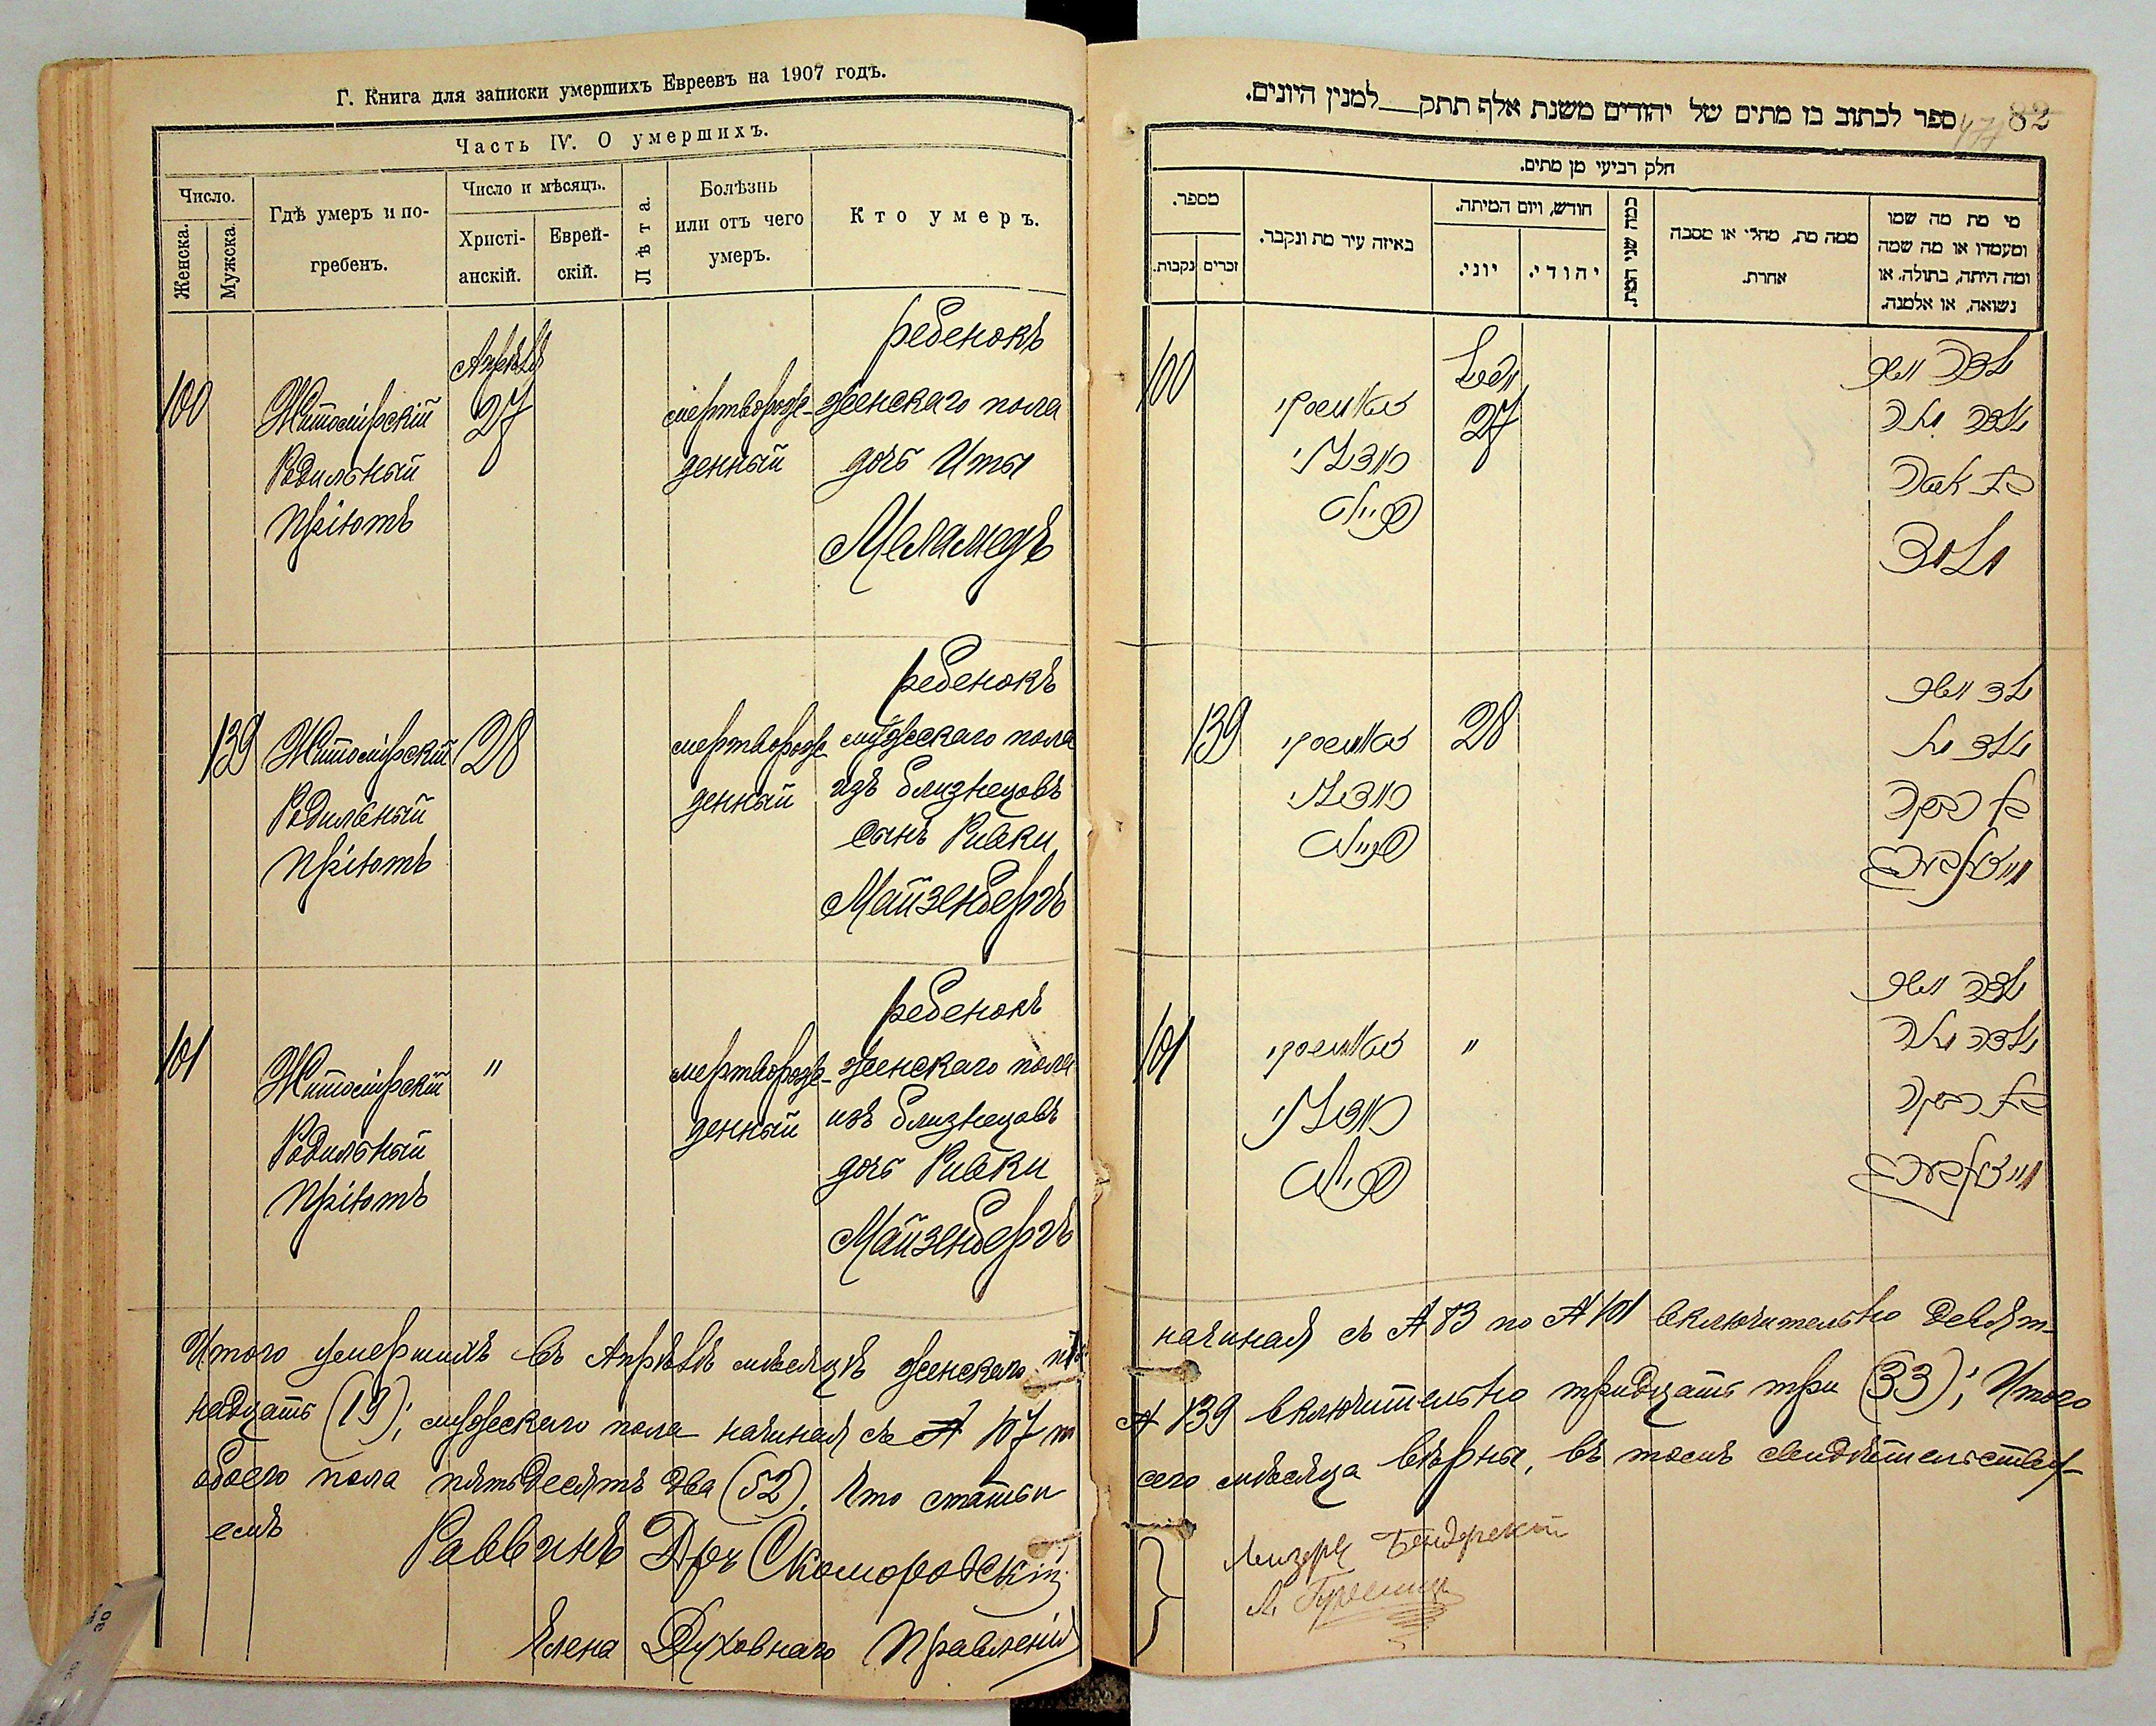 Г. Книга для записки умершихъ Евреевъ на 1907 годъ.
Часть IV. О умершихъ.
Число.
Женска.
Мужска.
Гдѣ умеръ и по-
гребенъ.
Число и мѣсяцъ.
Христі-
анскій.
Еврей-
скій.
Лѣта.
Болѣзнь
или отъ чего
умеръ.
Кто умеръ.
100
Житомірскій
Родильный
Пріютъ
Апрѣль
27
мертворож-
денный
ребенокъ
женскаго пола
дочь Иты
Меламедъ
139
Житомірскій
Родильный
Пріютъ
28
мертворож-
денный
ребенокъ
мужескаго пола
изъ близнецовъ
сынъ Ривки
Майзенбергъ
101
Житомірскій
Родильный
Пріютъ
"
мертворож-
денный
ребенокъ
женскаго пола
изъ близнецовъ
дочь Ривки
Майзенбергъ
Итого умершихъ въ Апрѣлѣ мѣсяцѣ женскаго
надцать (19); мужескаго пола начиная съ № 107
обоего пола пятьдесятъ два (52). Что статьи
емъ
Раввинъ Д-ръ Скомороскій
Члена Духовнаго Правленія
82
ספר לכתוב בו מתים של יהודים משנת אלף תתק למנין היונים.
חלק רביעי מן מתים.
מספר.
נקבות.
זכרים
באיזה עיר מת ונקבר.
חודש, ויום המיתה.
יוני.
יהודי.
כמה שני המת.
ממה מת, מחלי או מסבה
אחרת.
מי מת מה שמו
ומעמדו או מה שמה
ומה היתה, בתולה, או
נשואה, או אלמנה.
100
27
ילדה
מלמד
139
28
ילד
בן רבקה
מייזענבערג
101
"
ילדה
בת רבקה
מייזענבערג
начиная съ № 83 по № 101 включительно девят-
№ 139 включительно тридцать три (33); Итого
сего мѣсяца вѣрны, въ томъ свидѣтельству-